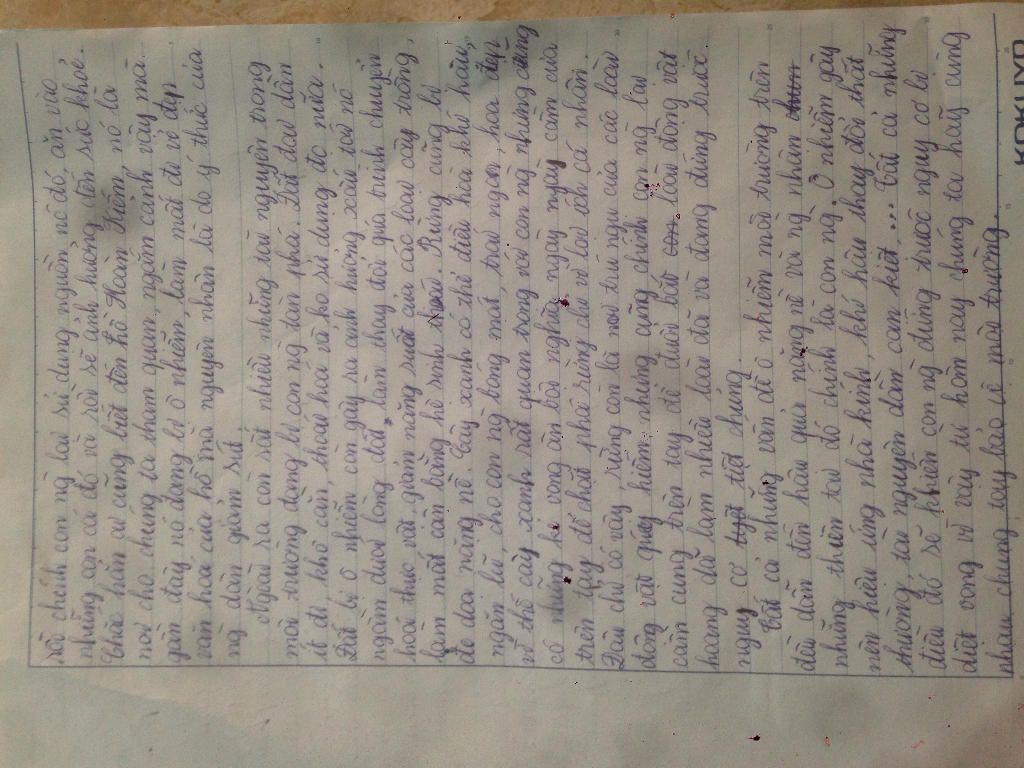 rồi chênh con ng lại sử dụng nguồn nc đó, ăn vào
những con cá đó và rồi sẽ ảnh hưởng đến sức khoẻ.
Chắc hẳn ai cũng biết đến hồ Hoàn Kiếm, nó là
nơi cho chúng ta tham quan, ngắm cảnh vậy mà
gần đây nó đang bị ô nhiễm, làm mất đi vẻ đẹp
văn hoá của hồ mà nguyên nhân là do ý thức của
ng dân giảm sút.
Ngoài ra còn rất nhiều những tài nguyên trong
môi trường đang bị con ng tàn phá. Đất đai dần
ít đi, khô cằn, thoái hoá và ko sử dụng đc nữa.
Đất bị ô nhiễm còn gây ra ảnh hưởng xấu tới nc
ngầm dưới lòng đất, làm thay đổi quá trình chuyển
hoá thực vật, giảm năng suất của các loại cây trồng,
làm mất cân bằng hệ sinh thái. Rừng cũng bị
đe doạ nặng nề. Cây xanh có thể điều hoà khí hậu,
ngăn lũ, cho con ng bóng mát, trái ngon, hoa đẹp
vì thế cây xanh rất quan trọng với con ng nhưng cũng
có những kẻ vong ân bội nghĩa ngày ngày cầm cưa
trên tay để chặt phá rừng chỉ vì lợi ích cá nhân.
Đâu chỉ có vậy, rừng còn là nơi trú ngụ của các loài
động vật quý hiếm nhưng cũng chính con ng lăm
cầm cung trên tay để đuổi bắt con loài động vật
hoang dã làm nhiều loài đã và đang đứng trước
nguy cơ tuyệt diệt chủng.
Tất cả những vấn đề ô nhiễm môi trường trên
đều dẫn đến hậu quả nặng nề và ng nhân
những thiên tai đó chính là con ng. Ô nhiễm gây
nên hiệu ứng nhà kính, khí hậu thay đổi thất
thường, tài nguyên dần cạn kiệt,... Tất cả những
điều đó sẽ khiến con ng đứng trước nguy cơ bị
diệt vong vì vậy từ hôm nay chúng ta hãy cùng
nhau chung tay bảo vệ môi trường.
KOKUYO